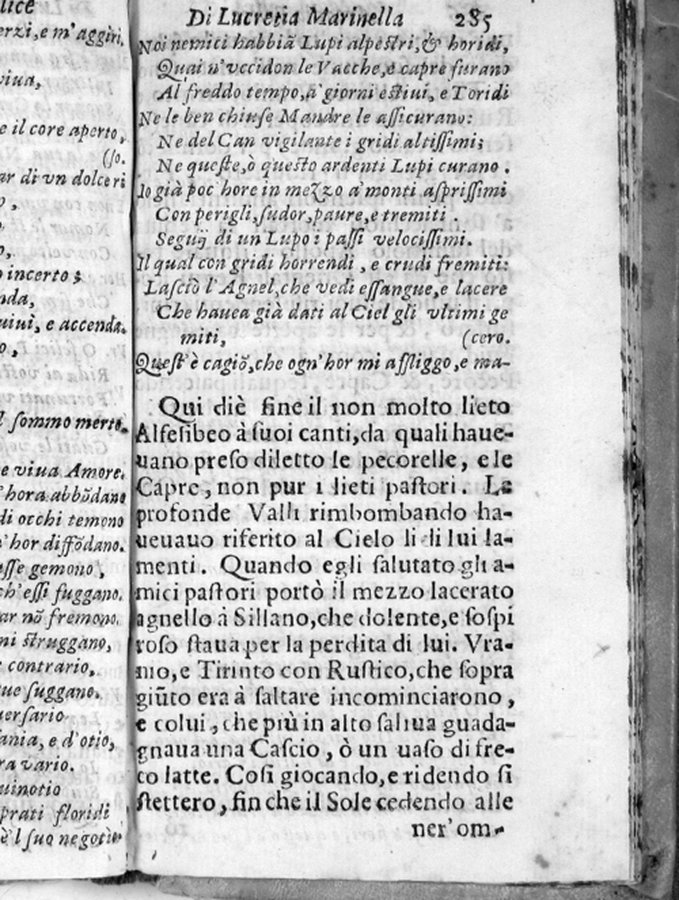 lice
erzi, e m'aggiri,
viua,
e il core aperto,
(so.
ar di vn dolce ri
o,
o incerto;
nda,
uiuì, e accenda.
o,
l sommo merto.
e viua Amore.
'hora abbōdano
di occhi temono
n'hor diffōdano.
asse gemono,
ch'essi fuggano.
ar nō fremono.
ni struggano,
contrario,
ue suggano.
uersario
ania, e d'otio,
ra vario.
uinotio
prati floridi
è'l suo negotio
Di Lucretia Marinella 285
Noi nemici habbiā Lupi alpestri, & horidi,
Quai n'vccidon le Vacche, e capre furano
Al freddo tempo, à giorni estiui, e Toridi
Ne le ben chiuse Mandre le assicurano:
Ne del Can vigilante i gridi altissimi;
Ne queste, ò questo ardenti Lupi curano.
Io già poc' hore in mezzo a' monti asprissimi
Con perigli, sudor, paure, e tremiti.
Seguij di un' Lupo i passi velocissimi.
Il qual con gridi horrendi, e crudi fremiti:
Lasciò l'Agnel, che vedi essangue, e lacere
Che hauea già dati al Ciel gli vltimi ge
miti, (cero.
Quest'è cagiō, che ogn'hor mi affliggo, e ma-
Qui diè fine il non molto lieto
Alfesibeo à suoi canti, da quali haue-
uano preso diletto le pecorelle, e le
Capre, non pur i lieti pastori. Le
profonde Valli rimbombando ha-
ueuauo riferito al Cielo li di lui la-
menti. Quando egli salutato gli a-
mici pastori portò il mezzo lacerato
agnello à Sillano, che dolente, e sospi
roso staua per la perdita di lui. Vra-
nio, e Tirinto con Rustico, che sopra
giūto era à saltare incominciarono,
e colui, che più in alto saliua guada-
gnaua una Cascio, ò un uaso di fre-
co latte. Cosi giocando, e ridendo si
stettero, fin che il Sole cedendo alle
ner'om-